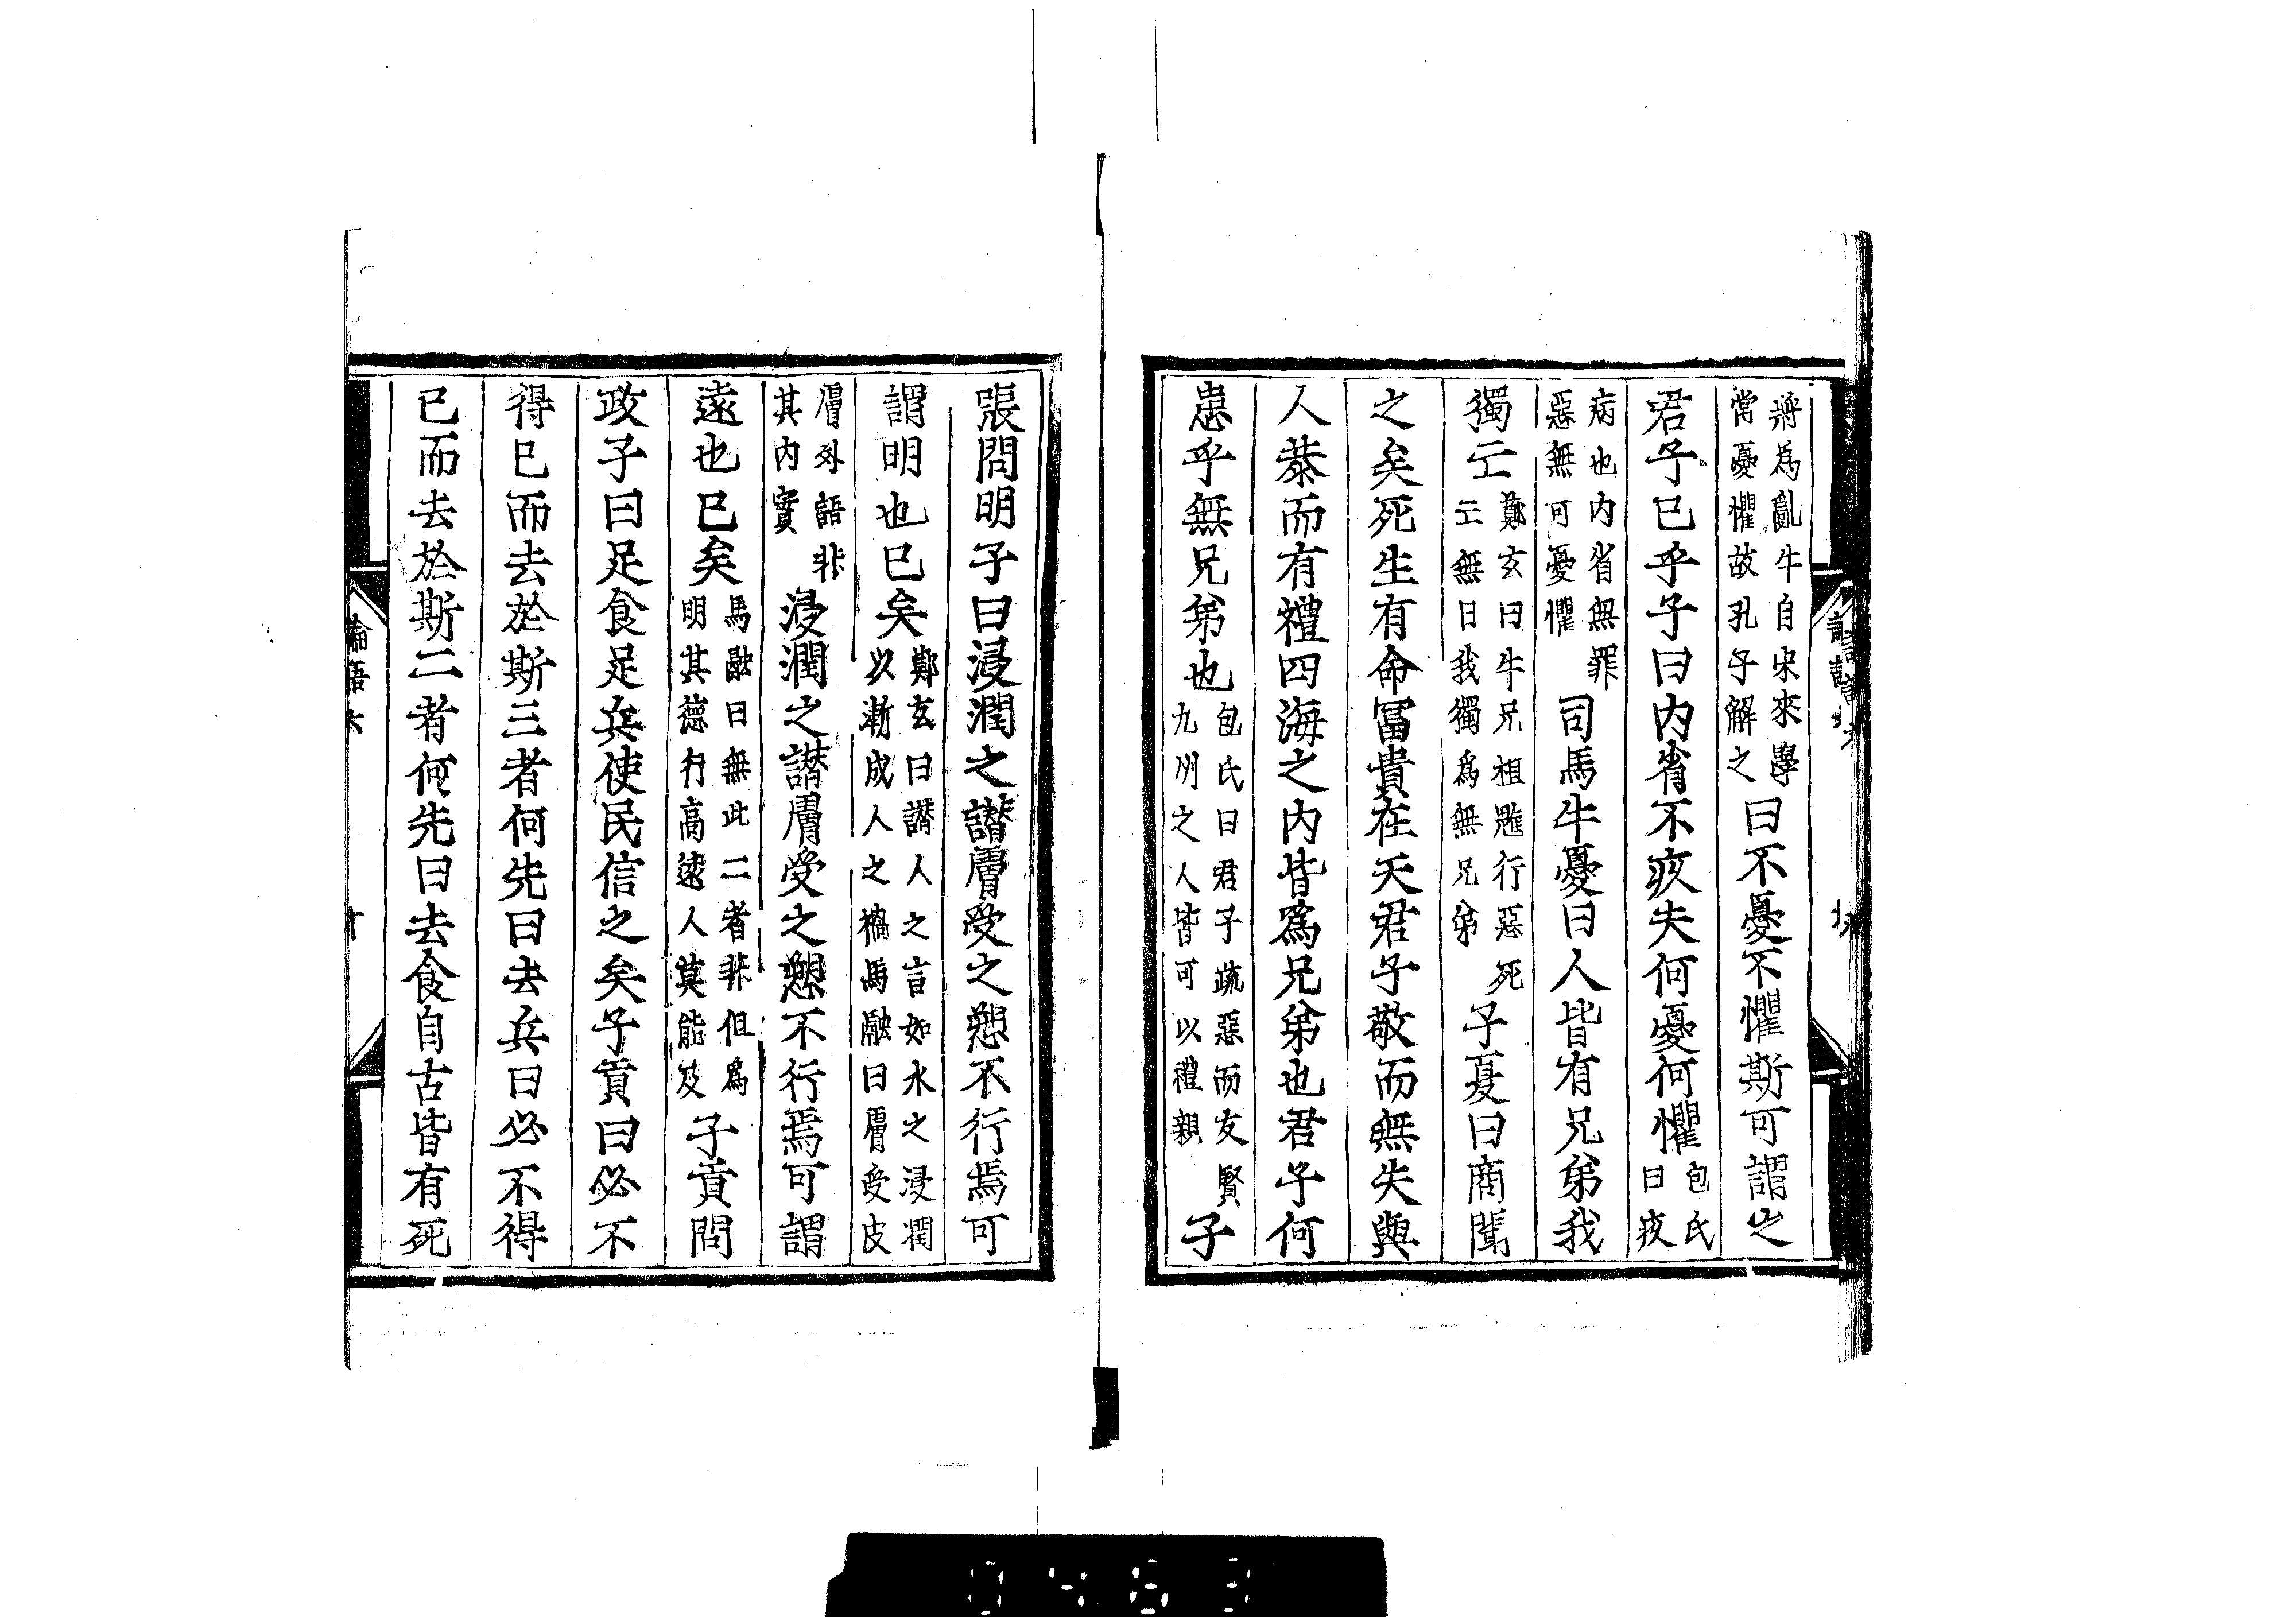 將為亂牛自宋來學
常憂懼故孔子解之
曰不憂不懼斯可謂之
君子已乎子曰内省不疚夫何憂何懼
包氏
曰疚
病也内省無罪
惡無可憂懼
司馬牛憂曰人皆有兄弟我
獨亡
鄭玄曰牛兄桓魋行惡死
亡無日我獨為無兄弟
子夏曰商聞
之矣死生有命冨貴在天君子敬而無失與
人恭而有禮四海之内皆為兄弟也君子何
患乎無兄弟也
包氏曰君子疏惡而友賢
九州之人皆可以禮親
子
張問明子曰浸潤之譖膚受之愬不行焉可
謂明也已矣
鄭玄曰譖人之言如水之浸潤
以漸成人之禍馬融曰膚受皮
膚外語非
其内實
浸潤之譖膚受之愬不行焉可謂
遠也已矣
馬融曰無此二者非但為
明其德行高遠人莫能及
子貢問
政子曰足食足兵使民信之矣子貢曰必不
得已而去於斯三者何先曰去兵曰必不得
已而去於斯二者何先曰去食自古皆有死
論語六
十
0463